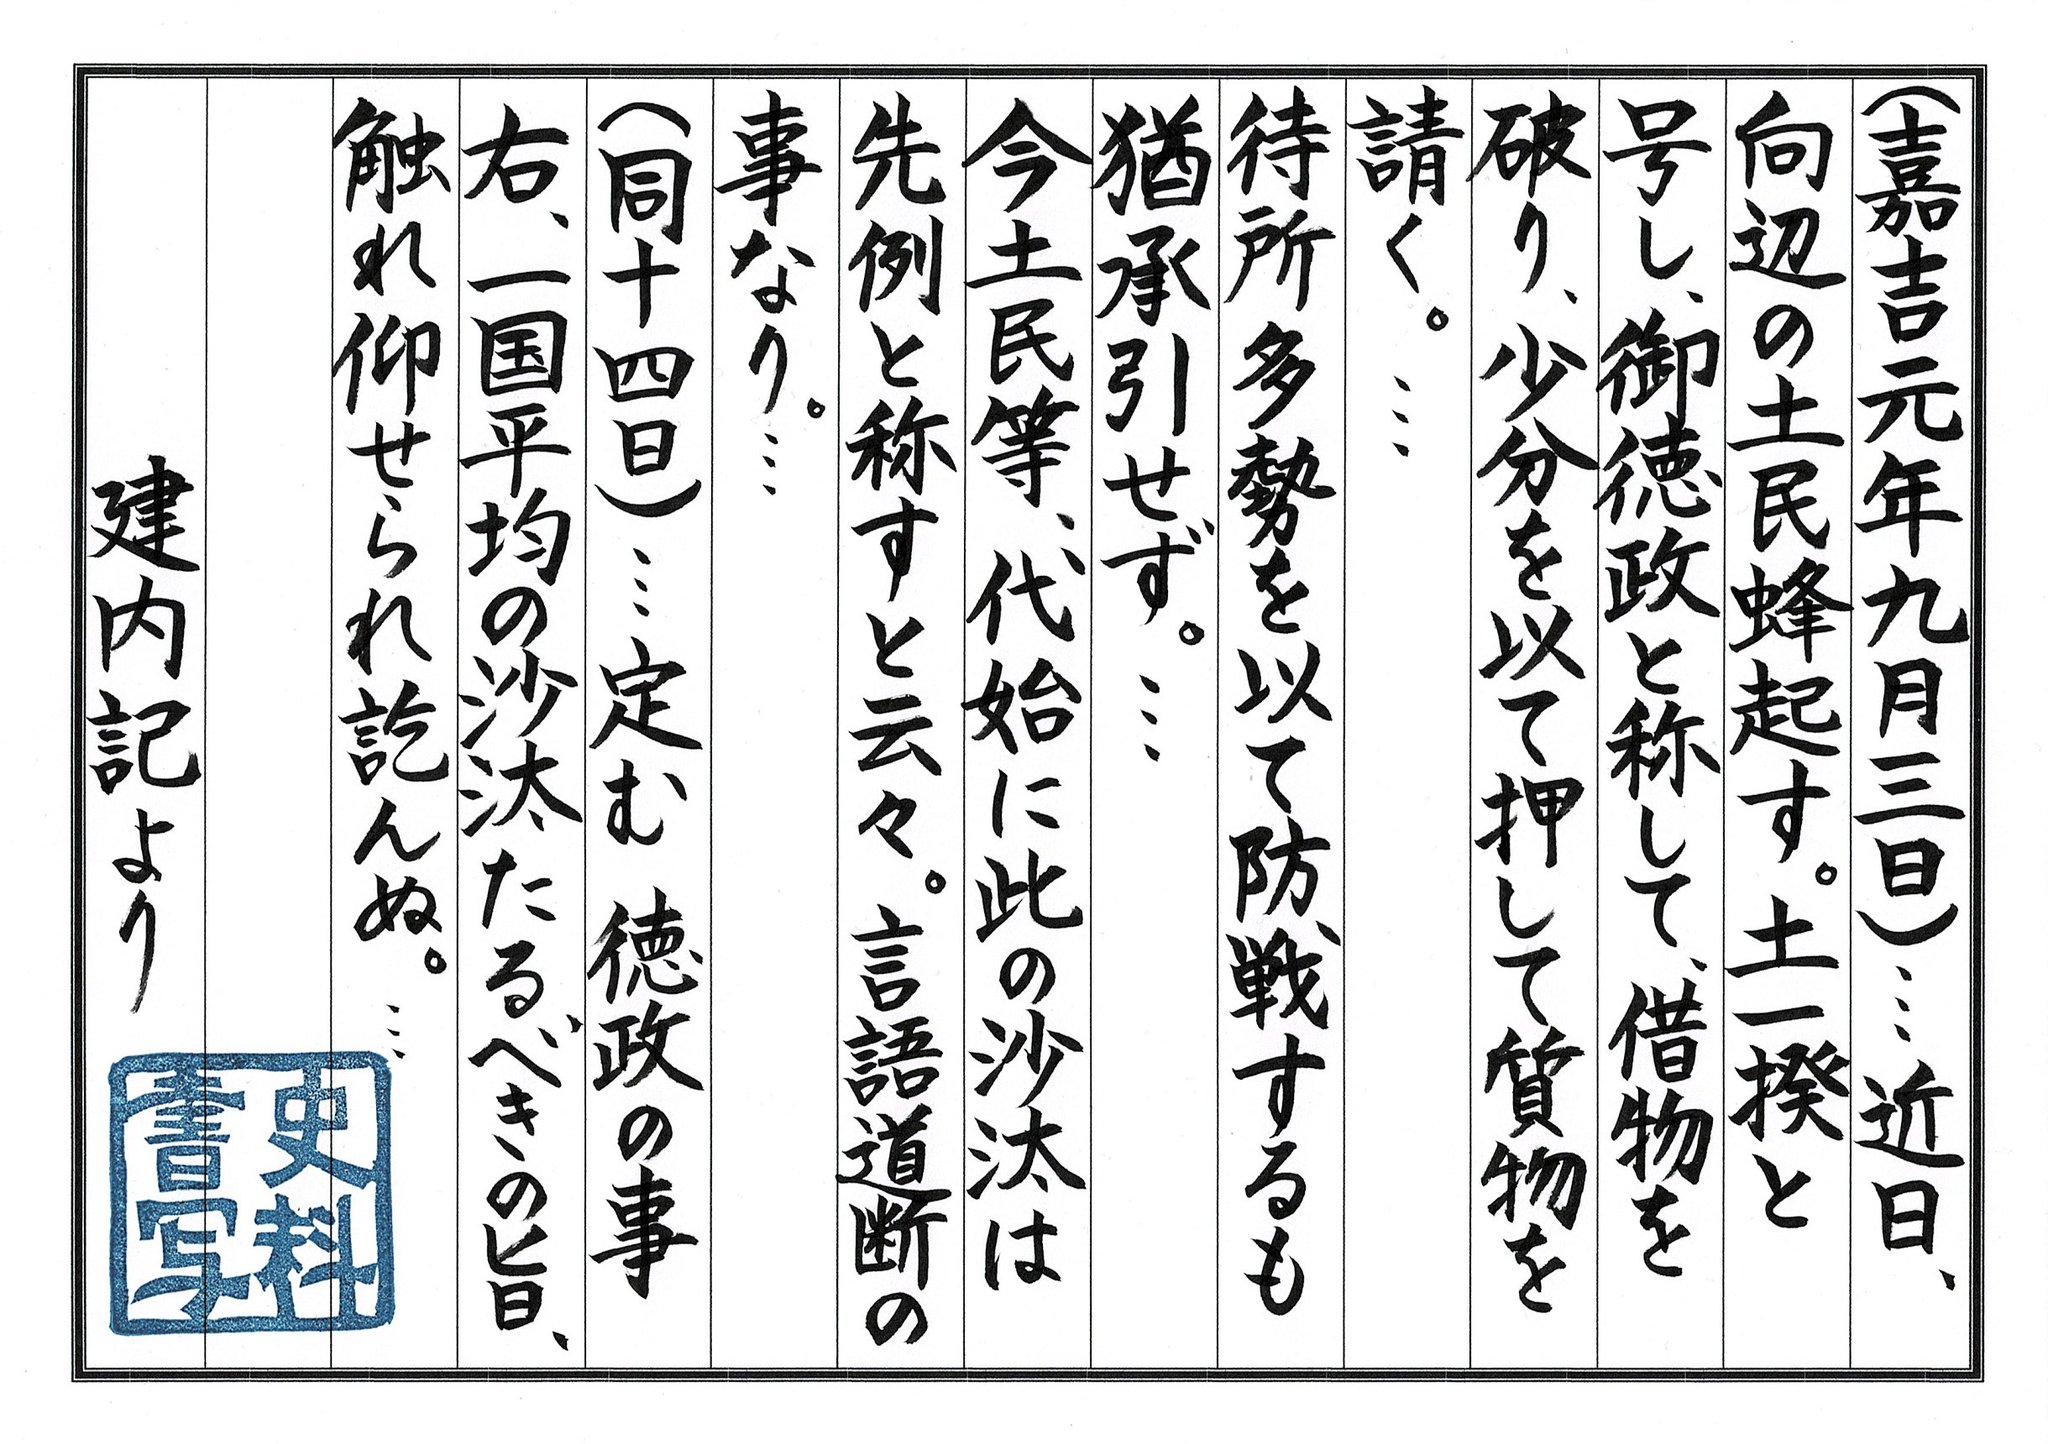 (嘉吉元年九月三日)…近日、
向辺の土民蜂起す。土一揆と
号し、御徳政と称して、借物を
破り、少分を以て押して質物を
請く。…
待所多勢を以て防戦するも
猶承引せず。…
今土民等、代始に此の沙汰は
先例と称すと云々。言語道断の
事なり。…
(同十四日)…定む 徳政の事
右、一国平均の沙汰たるべきの旨、
触れ仰せられ訖んぬ。…
建内記より
史料
書写